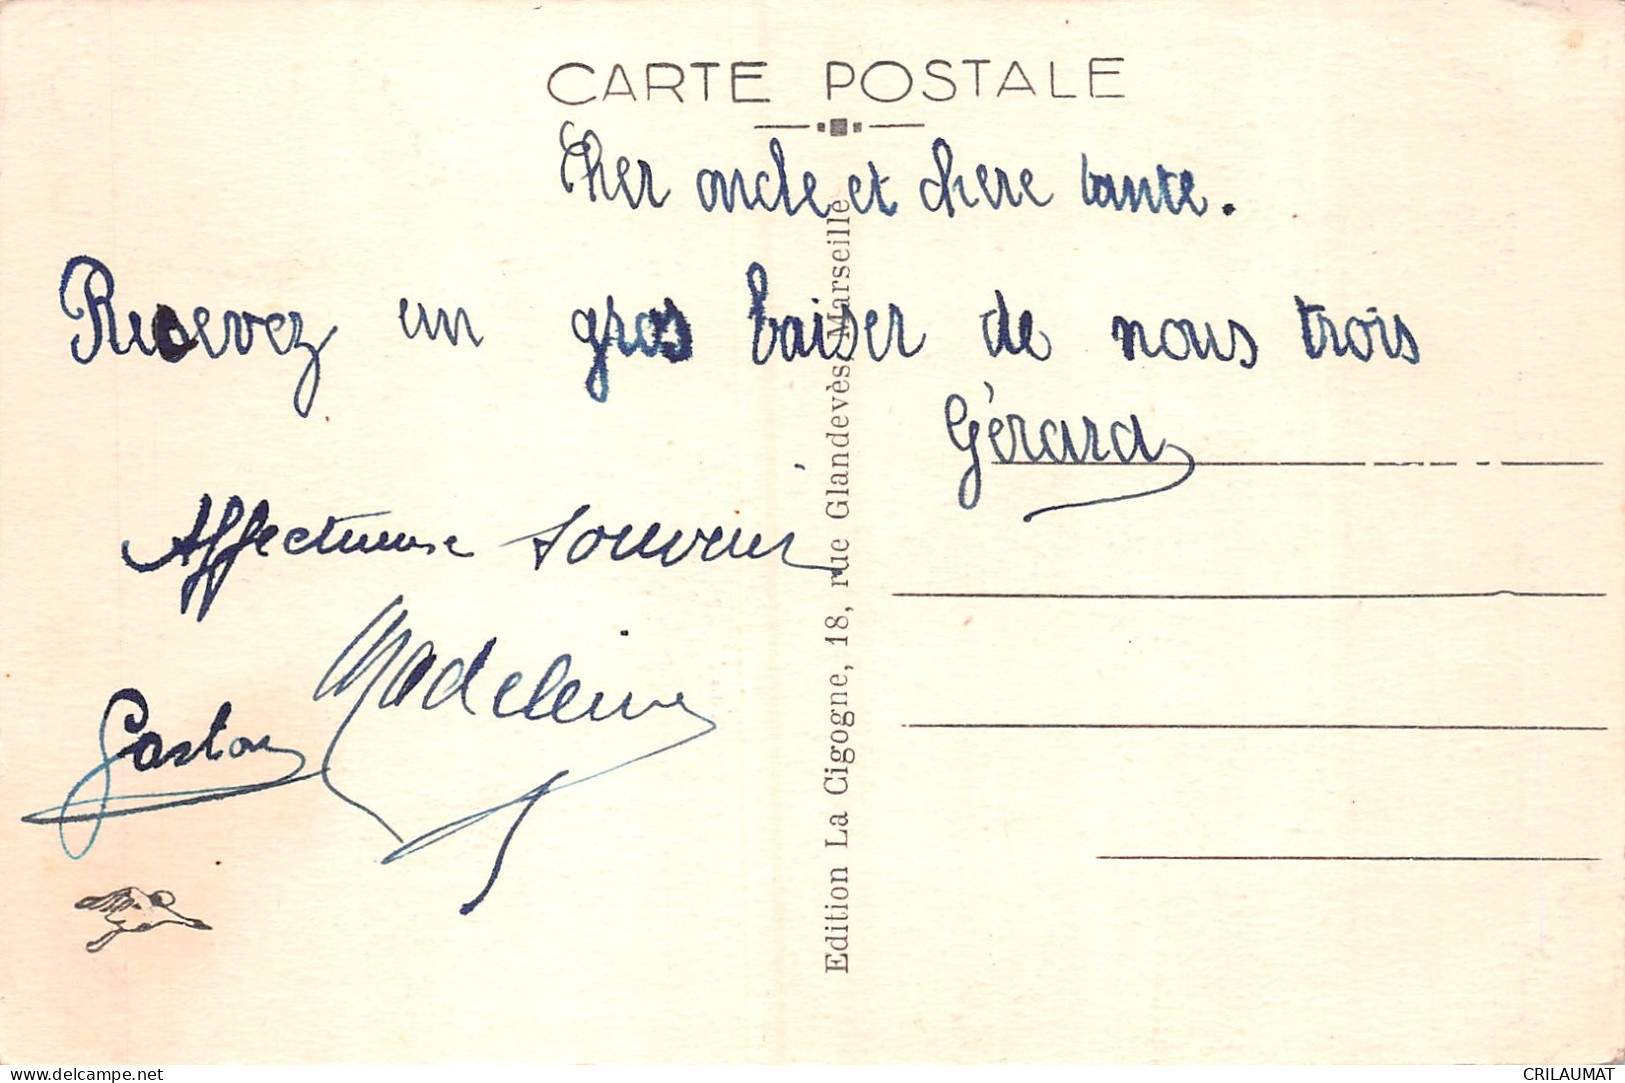 CARTE POSTALE
Cher oncle et chere tante.
Recevez un gros baiser de nous trois
Gérard
Affectueuse souvenir
Madeleine
Gaston
Edition La Cigogne, 18, rue Glandevès, Marseille
delcampe.net
CRILAUMAT